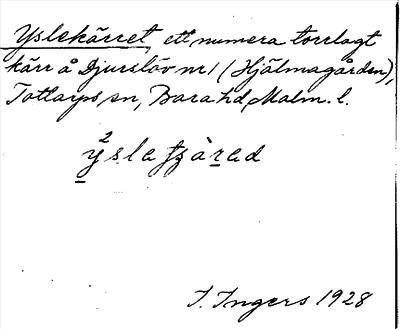 Yslekärret, ett numera torrlagt
kärr å Djurslöv nr 1 (Hjälmagården),
Tottarps sn, Bara hd, Malm. l.
²ysle tʃàred
I. Ingers 1928